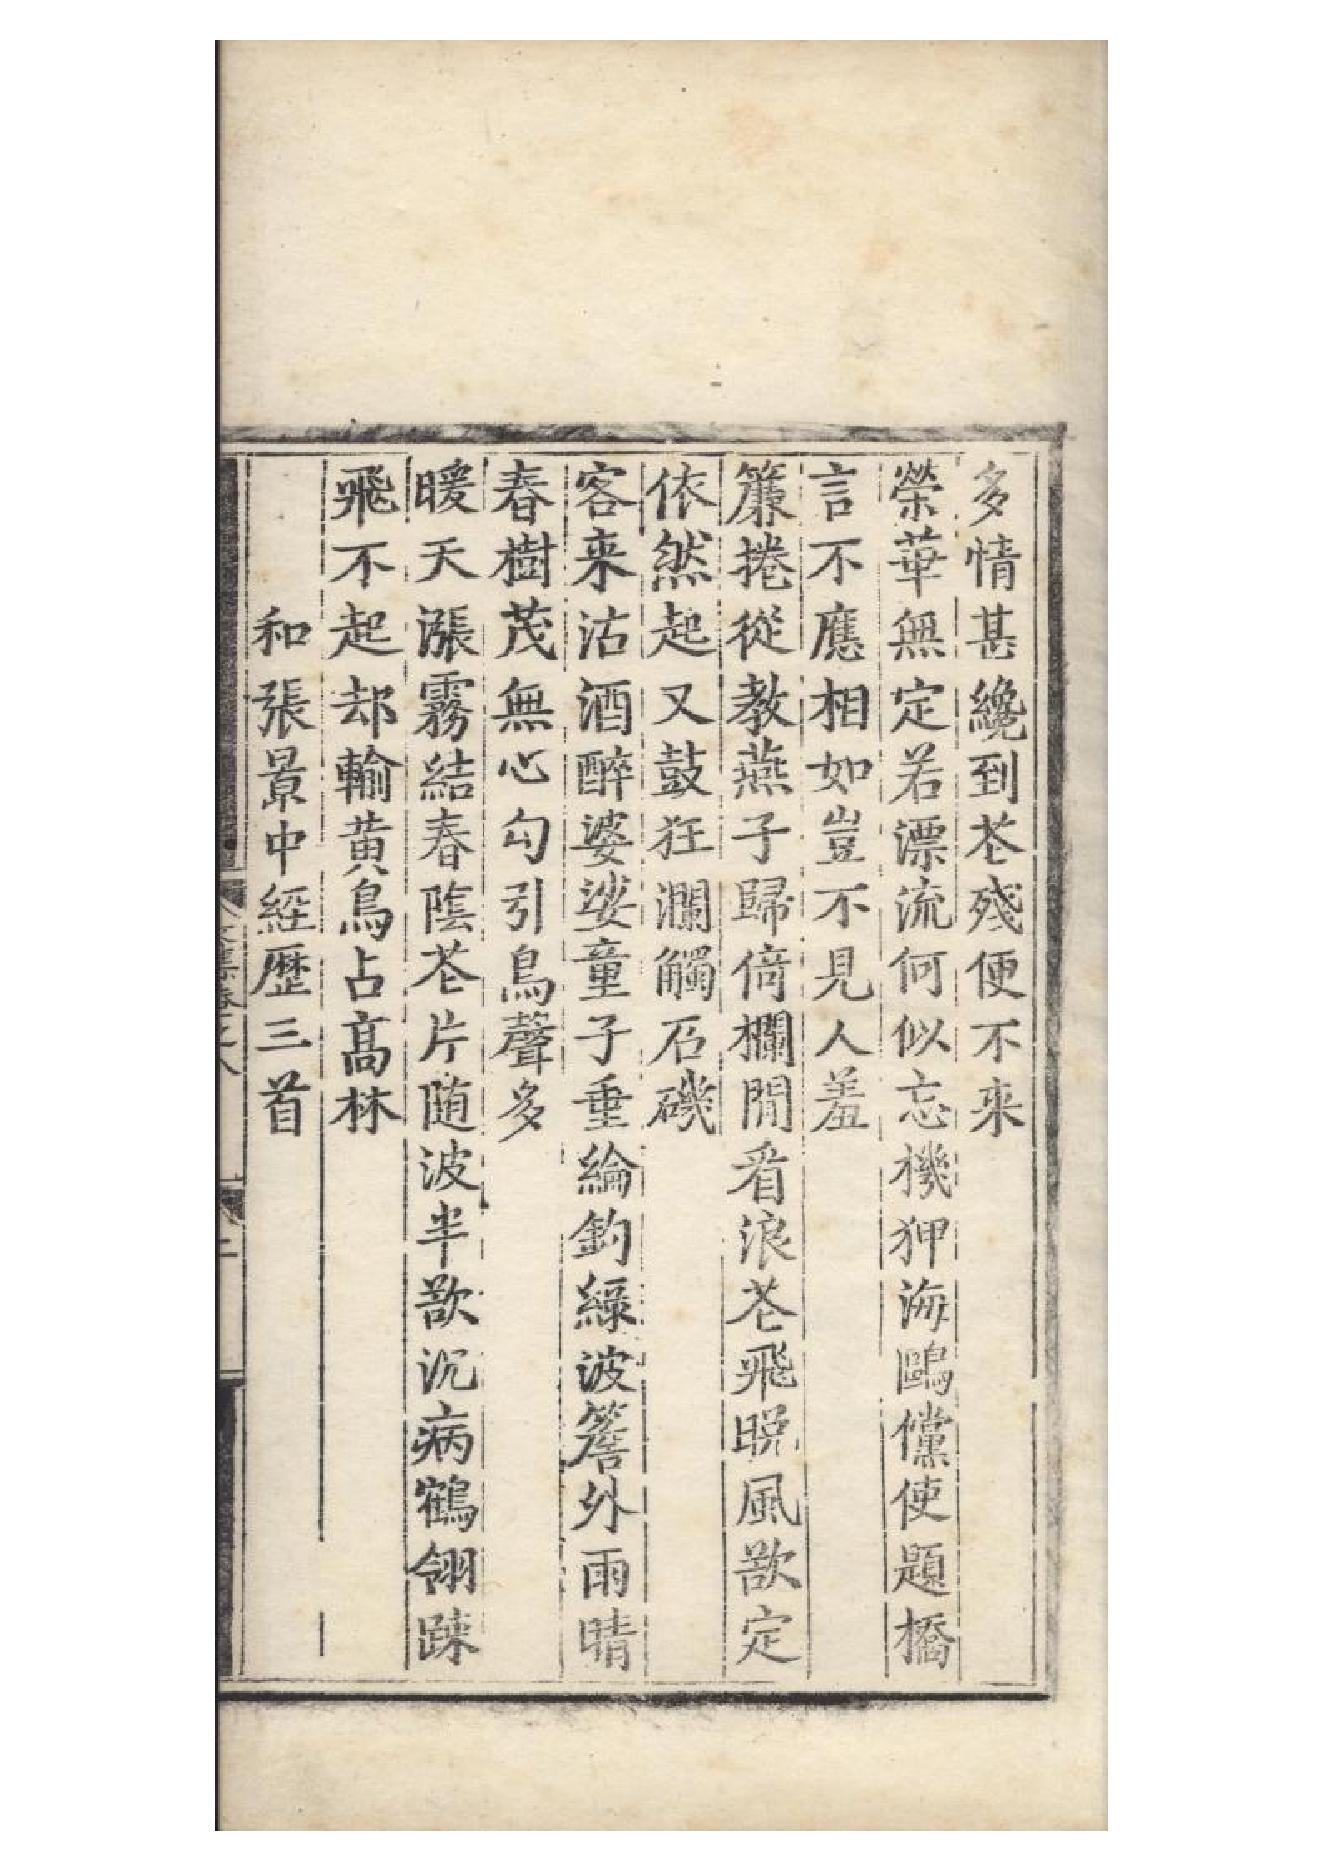 多情甚纔到花殘便不来
榮華無定若漂流何似忘機狎海鷗儻使題橋
言不應相如豈不見人羞
簾捲從教燕子歸倚欄閒看浪花飛晚風欲定
依然起又鼓狂瀾觸石磯
客来沽酒醉婆娑童子垂綸釣綠波簷外雨晴
春樹茂無心勾引鳥聲多
暖天漲霧結春陰花片随波半欲沉病鶴翎踈
飛不起却輸黄鳥占髙林
和張景中經歴三首